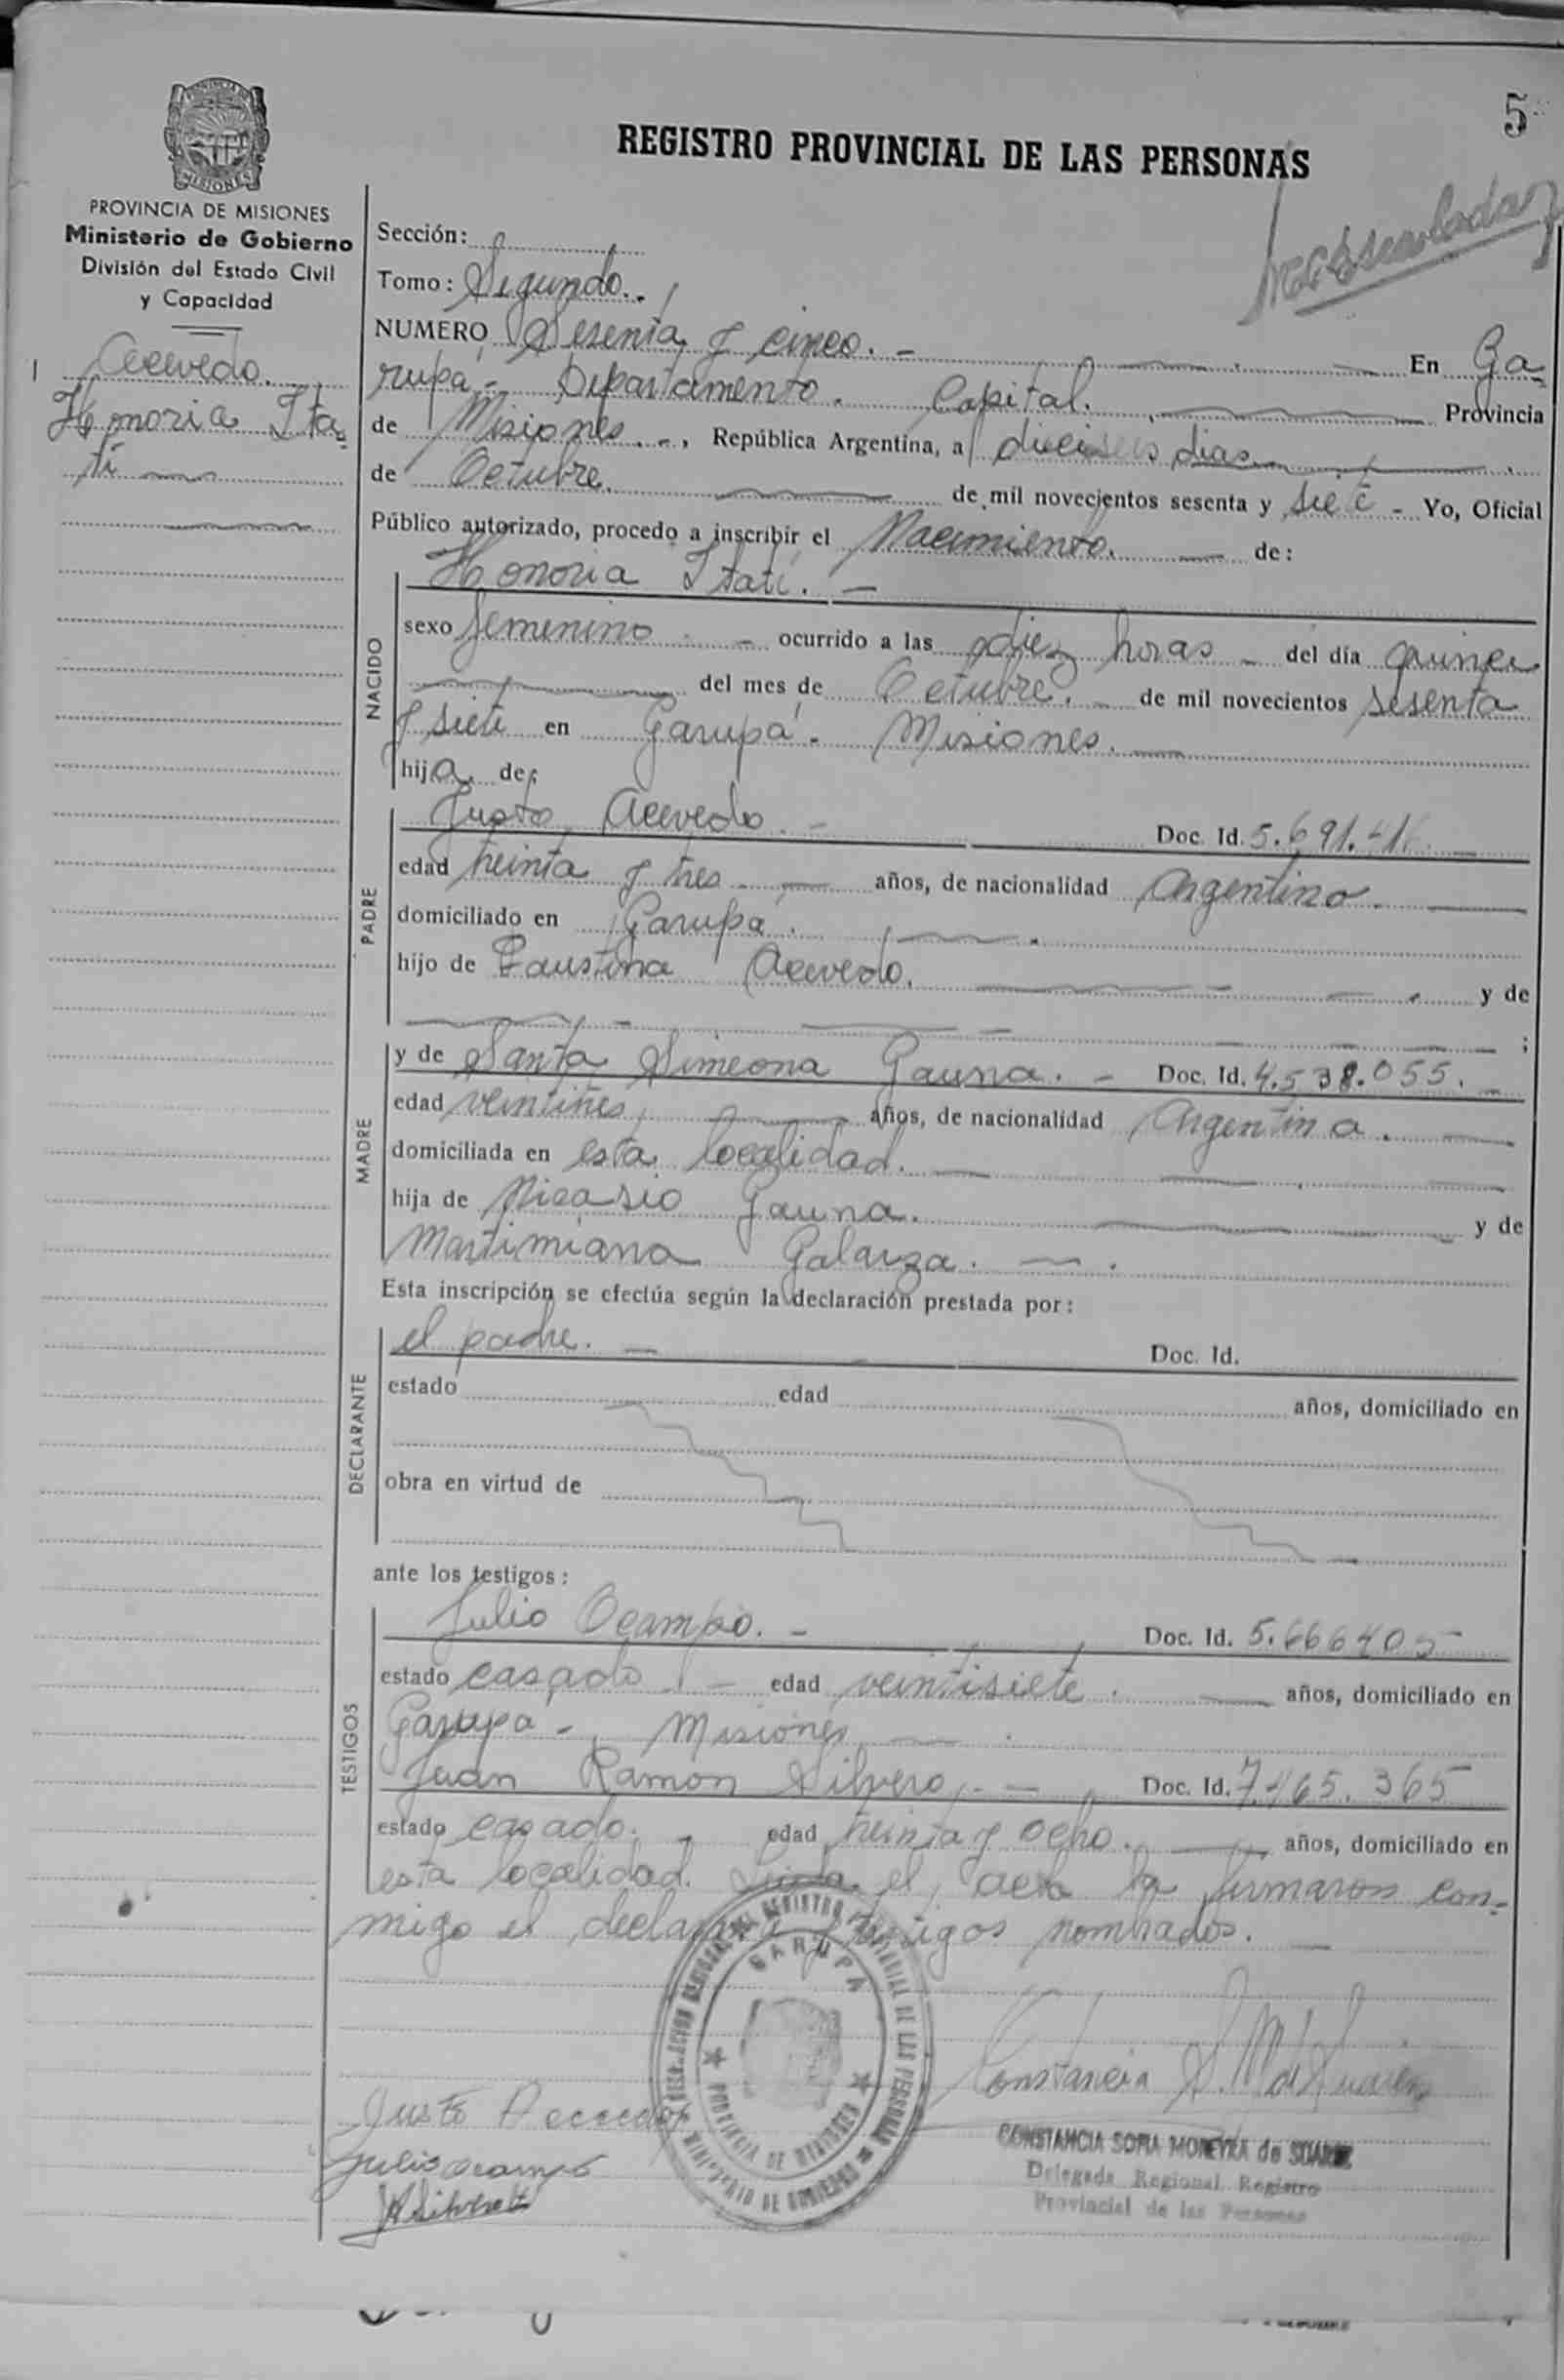 5
REGISTRO PROVINCIAL DE LAS PERSONAS
PROVINCIA DE MISIONES
Ministerio de Gobierno
División del Estado Civil
y Capacidad
Acevedo.
Honoria Ita-
tí
Sección:
Tomo: Segundo.
NUMERO Sesenta y cinco. - En Ga-
rupá - Departamento. Capital. Provincia
de Misiones. -, República Argentina, a dieciseis dias
de Octubre. de mil novecientos sesenta y siete - Yo, Oficial
Público autorizado, procedo a inscribir el Nacimiento. de:
NACIDO
Honoria Itatí. -
sexo femenino. - ocurrido a las diez horas - del día quince
del mes de Octubre. - de mil novecientos sesenta
y siete en Garupá. Misiones.
hija de:
PADRE
Justo Acevedo. - Doc. Id. 5.691.
edad treinta y tres. años, de nacionalidad Argentino.
domiciliado en Garupá.
hijo de Faustina Acevedo. y de
;
MADRE
y de Santa Simeona Gauna. - Doc. Id. 4.538.055.
edad veintitres, años, de nacionalidad Argentina.
domiciliada en esta localidad.
hija de Nicasio Gauna. y de
Martimiana Galarza.
Esta inscripción se efectúa según la declaración prestada por:
DECLARANTE
el padre. - Doc. Id.
estado edad años, domiciliado en
obra en virtud de
ante los testigos:
TESTIGOS
Julio Ocampo. - Doc. Id. 5.666405
estado casado - edad veintisiete. años, domiciliado en
Garupá - Misiones
Juan Ramon Silvero. - Doc. Id. 7.465.365
estado casado. - edad treinta y ocho. años, domiciliado en
esta localidad. Leida el acta la firmaron con-
migo el declarante y testigos nombrados.
GARUPA
PROVINCIA DE MISIONES
MINISTERIO DE GOBIERNO
Constancia S. M. de Suarez
Justo Acevedo
CONSTANCIA SOFIA MOREYRA de SUAREZ
Julio Ocampo
Delegada Regional Registro
Provincial de las Personas